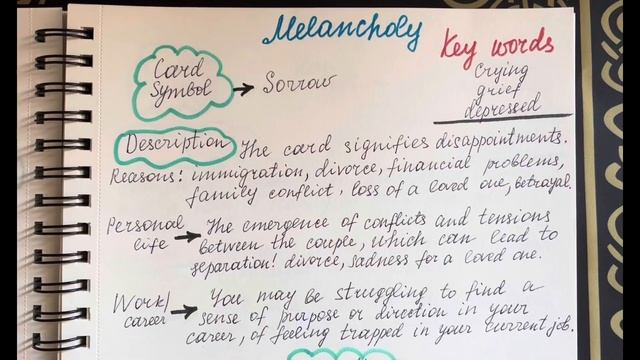 Melancholy
Key words
Crying
grief
depressed
Card
Symbol → Sorrow
Description The card signifies disappointments.
Reasons: immigration, divorce, financial problems,
family conflict, loss of a loved one, betrayal.
Personal life → The emergence of conflicts and tensions
between the couple, which can lead to
separation! divorce, sadness for a loved one.
Work/
career → You may be struggling to find a
sense of purpose or direction in your
career, of feeling trapped in your current job.